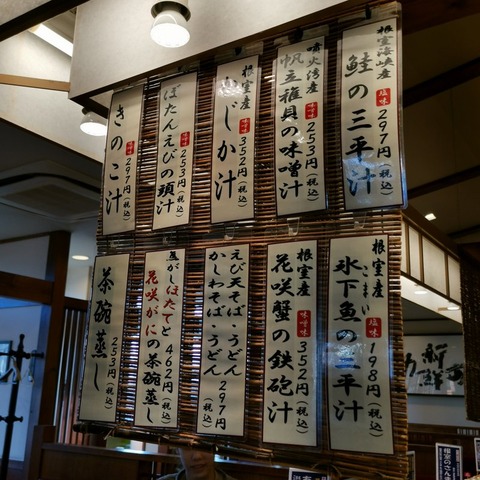 根室海峡産
鮭の三平汁
塩味
297円(税込)
噴火湾産
帆立稚貝の味噌汁
味噌味
253円(税込)
根室産
かじか汁
味噌味
352円(税込)
ぼたんえびの頭汁
味噌味
253円(税込)
きのこ汁
味噌味
297円(税込)
根室産
氷下魚の三平汁
こまい
塩味
198円(税込)
根室産
花咲蟹の鉄砲汁
味噌味
352円(税込)
えび天そば・うどん
かしわそば・うどん
297円(税込)
蒸がしほたてと
花咲がにの茶碗蒸し
462円(税込)
茶碗蒸し
253円(税込)
新鮮
根室のさんま